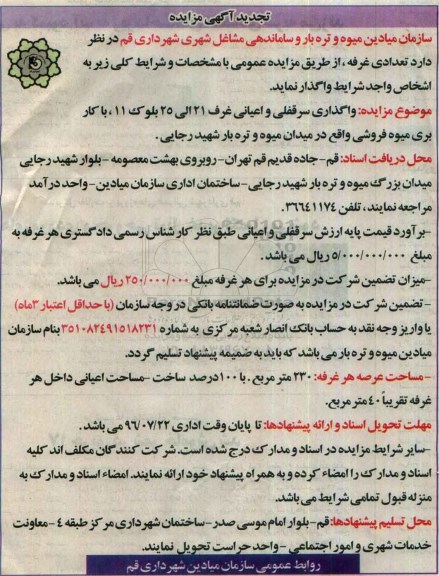 تجدید آگهی مزایده
سازمان میادین میوه و تره بار و ساماندهی مشاغل شهری شهرداری قم در نظر
دارد تعدادی غرفه ، از طریق مزایده عمومی با مشخصات و شرایط کلی زیر به
اشخاص واجد شرایط واگذار نماید.
موضوع مزایده: واگذاری سرقفلی و اعیانی غرف ۲۱ الی ۲۵ بلوک ۱۱ ، با کار
بری میوه فروشی واقع در میدان میوه و تره بار شهید رجایی .
محل دریافت اسناد: قم - جاده قدیم قم تهران - روبروی بهشت معصومه - بلوار شهید رجایی
میدان بزرگ میوه و تره بار شهید رجایی - ساختمان اداری سازمان میادین - واحد درآمد
مراجعه نمایند ، تلفن ۳۶۶۴۱۱۷۴.
-برآورد قیمت پایه ارزش سرقفلی و اعیانی طبق نظر کارشناس رسمی دادگستری هر غرفه به
مبلغ ۵/۰۰۰/۰۰۰/۰۰۰ ریال می باشد .
-میزان تضمین شرکت در مزایده برای هر غرفه مبلغ ۲۵۰/۰۰۰/۰۰۰ ریال می باشد.
- تضمین شرکت در مزایده به صورت ضمانتنامه بانکی در وجه سازمان (با حداقل اعتبار ۳ماه)
یا واریز وجه نقد به حساب بانک انصار شعبه مرکزی به شماره ۳۵۱۰۸۲۴۹۱۵۱۸۲۳۱ بنام سازمان
میادین میوه و تره بار می باشد که باید به ضمیمه پیشنهاد تسلیم گردد.
-مساحت عرصه هر غرفه: ۲۳۰ متر مربع . با ۱۰۰ درصد ساخت -مساحت اعیانی داخل هر
غرفه تقریباً ۴۰ متر مربع.
مهلت تحویل اسناد و ارائه پیشنهادها: تا پایان وقت اداری ۹۶/۰۷/۲۲ می باشد .
-سایر شرایط مزایده در اسناد و مدارک درج شده است. شرکت کنندگان مکلف اند کلیه
اسناد و مدارک را امضاء کرده و به همراه پیشنهاد خود ارائه نمایند. امضاء اسناد و مدارک به
منزله قبول تمامی شرایط می باشد.
محل تسلیم پیشنهادها: قم-بلوار امام موسی صدر-ساختمان شهرداری مرکز طبقه ۴ -معاونت
خدمات شهری و امور اجتماعی - واحد حراست تحویل نمایند.
روابط عمومی سازمان میادین شهرداری قم